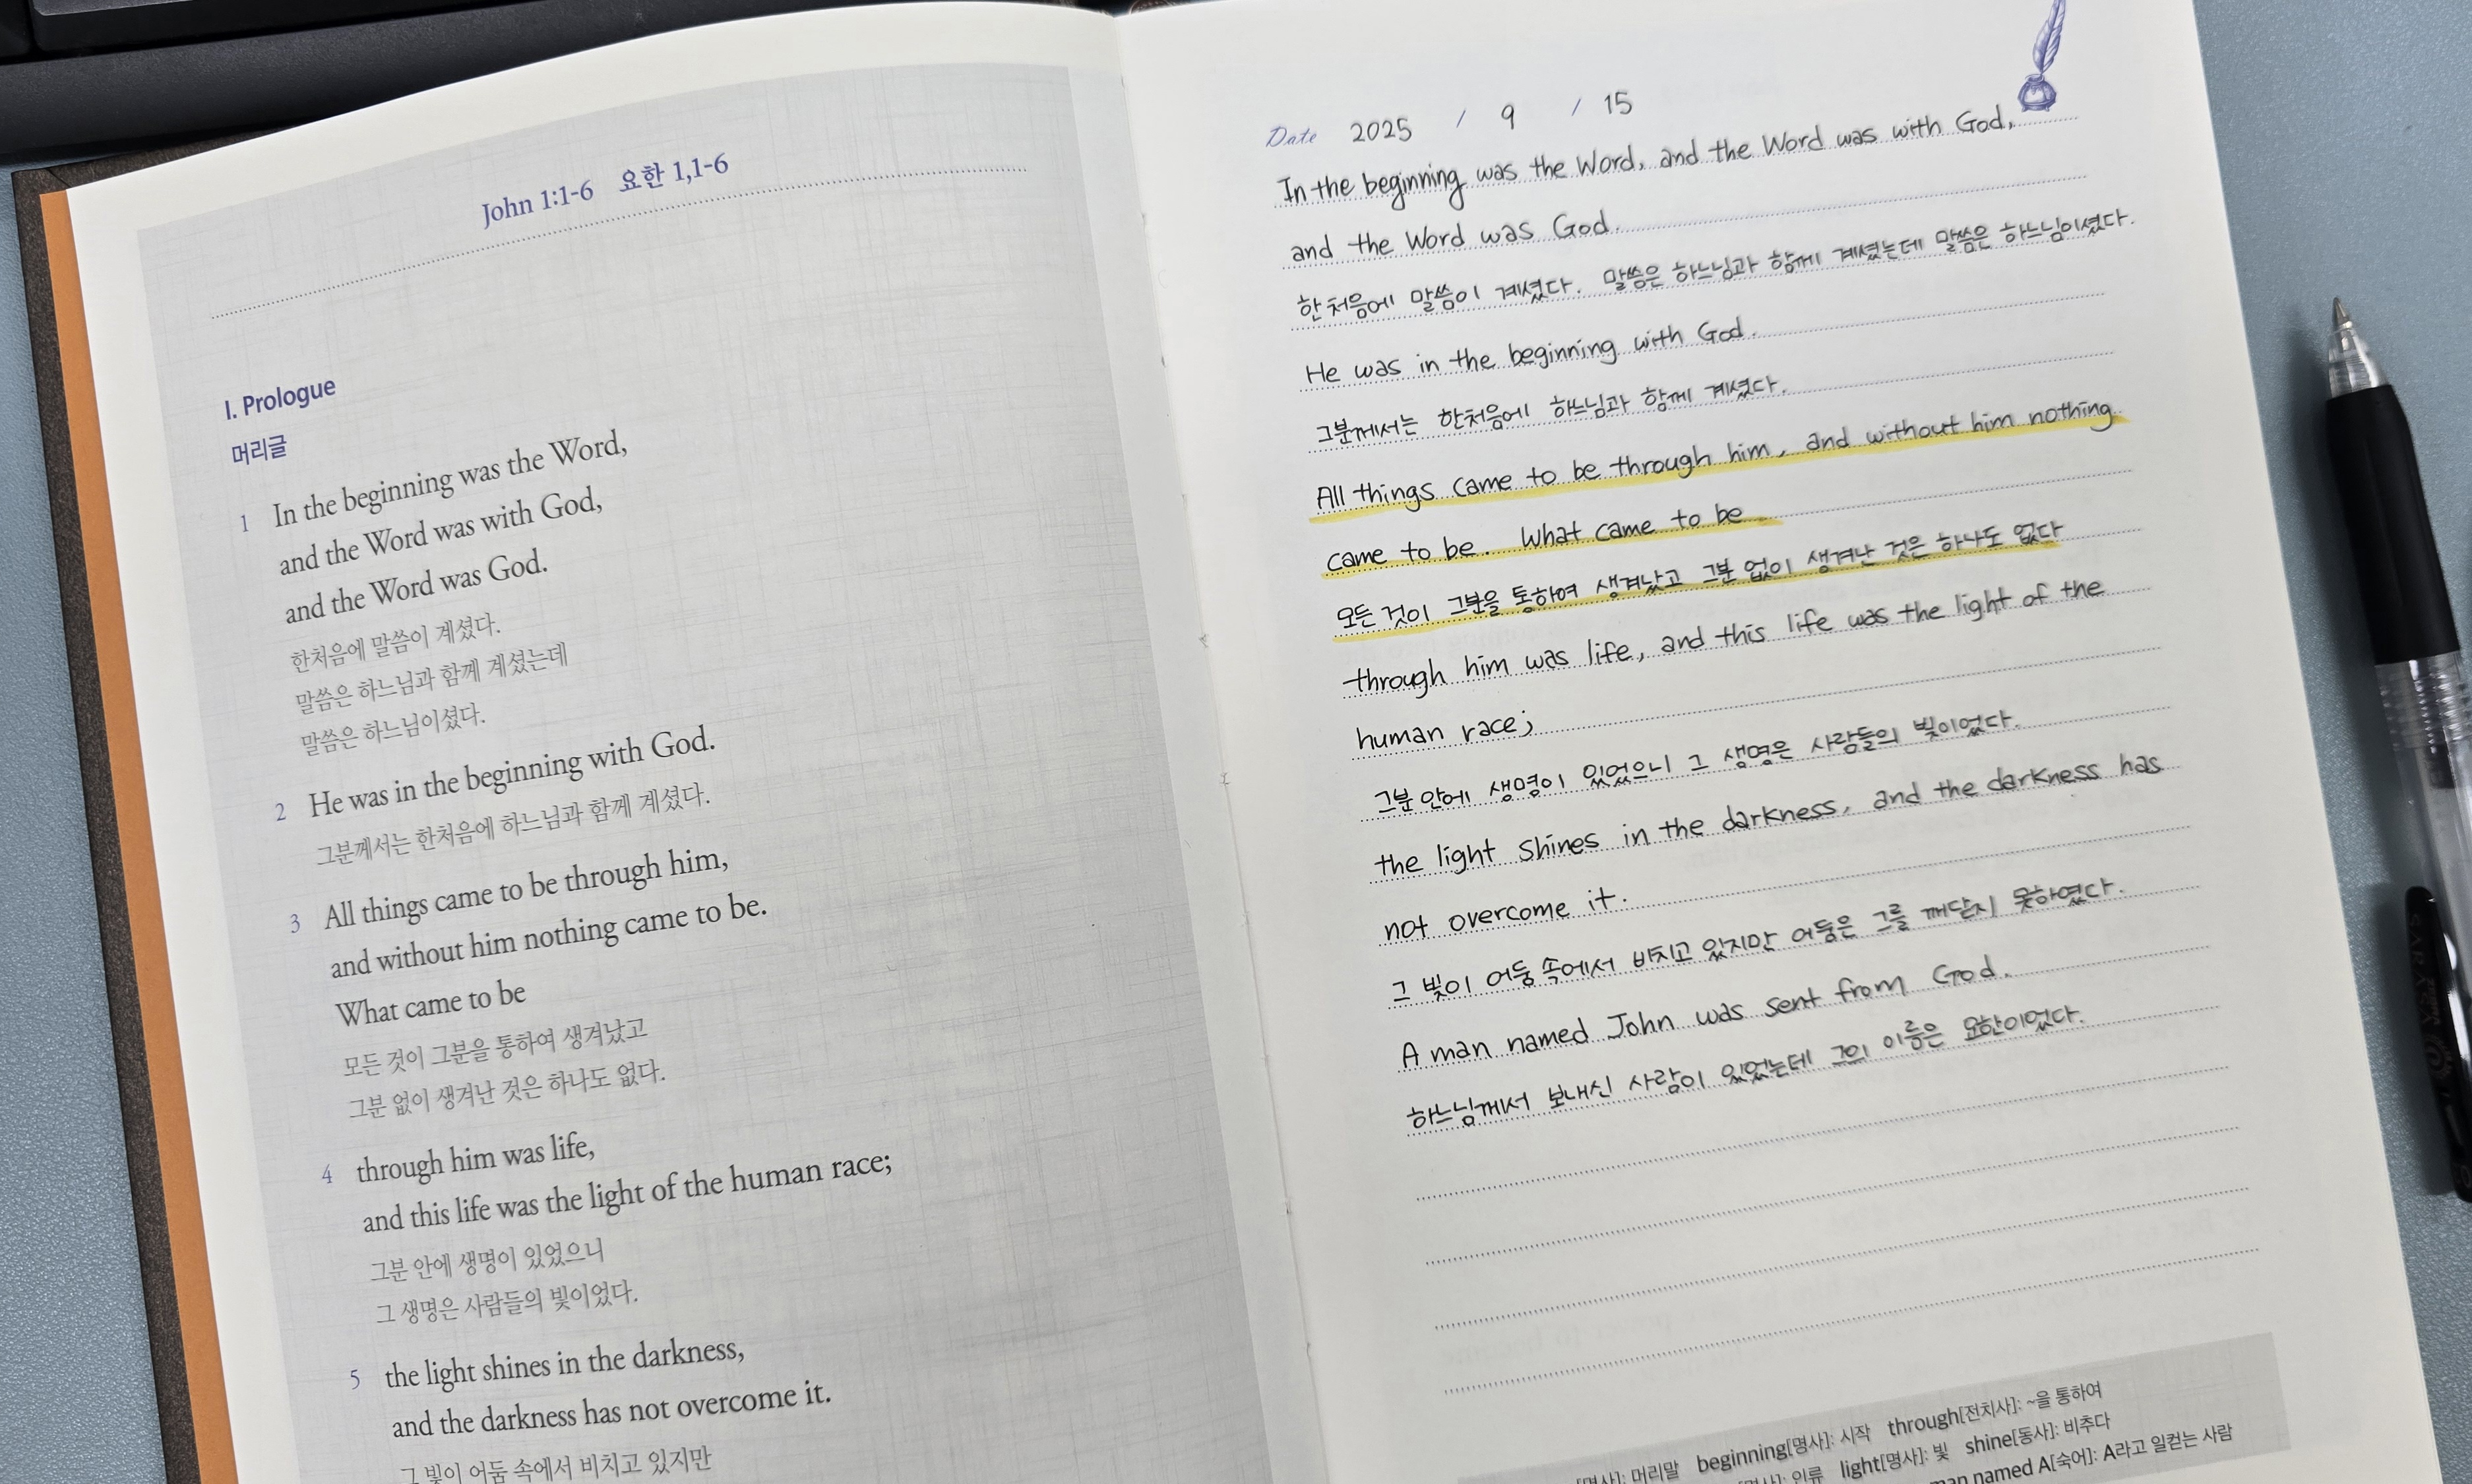 John 1:1-6 요한 1,1-6
I. Prologue
머리글
1 In the beginning was the Word,
and the Word was with God,
and the Word was God.
한처음에 말씀이 계셨다.
말씀은 하느님과 함께 계셨는데
말씀은 하느님이셨다.
2 He was in the beginning with God.
그분께서는 한처음에 하느님과 함께 계셨다.
3 All things came to be through him,
and without him nothing came to be.
What came to be
모든 것이 그분을 통하여 생겨났고
그분 없이 생겨난 것은 하나도 없다.
4 through him was life,
and this life was the light of the human race;
그분 안에 생명이 있었으니
그 생명은 사람들의 빛이었다.
5 the light shines in the darkness,
and the darkness has not overcome it.
그 빛이 어둠 속에서 비치고 있지만
Date 2025 / 9 / 15
In the beginning was the Word, and the Word was with God,
and the Word was God.
한처음에 말씀이 계셨다. 말씀은 하느님과 함께 계셨는데 말씀은 하느님이셨다.
He was in the beginning with God.
그분께서는 한처음에 하느님과 함께 계셨다.
All things came to be through him, and without him nothing
came to be. What came to be
모든 것이 그분을 통하여 생겨났고 그분 없이 생겨난 것은 하나도 없다
through him was life, and this life was the light of the
human race;
그분 안에 생명이 있었으니 그 생명은 사람들의 빛이었다.
the light shines in the darkness, and the darkness has
not overcome it.
그 빛이 어둠 속에서 비치고 있지만 어둠은 그를 깨닫지 못하였다.
A man named John was sent from God.
하느님께서 보내신 사람이 있었는데 그의 이름은 요한이었다.
[명사]: 머리말 beginning[명사]: 시작 through[전치사]: ~을 통하여
[명사]: 인류 light[명사]: 빛 shine[동사]: 비추다
man named A[숙어]: A라고 일컫는 사람